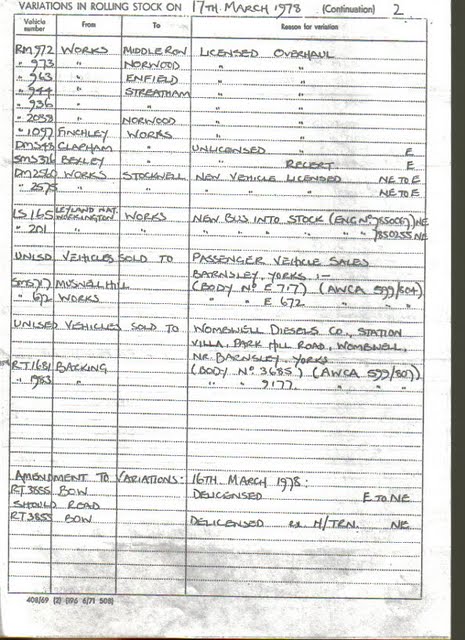 VARIATIONS IN ROLLING STOCK ON 17TH. MARCH 1978 (Continuation) 2
Vehicle number From To Reason for variation
RM972 WORKS MIDDLEROW LICENSED OVERHAUL
" 973 " NORWOOD " "
" 963 " ENFIELD " "
" 944 " STREATHAM " "
" 936 " " " "
" 2058 " NORWOOD " "
" 1097 FINCHLEY WORKS " "
DM948 CLAPHAM " UNLICENSED " E
SMS316 BEXLEY " " RECERT. E
DM2560 WORKS STOCKWELL NEW VEHICLE LICENSED NE TO E
" 2575 " " " " " NE TO E
LS 165 LEYLAND NAT. WORKINGTON WORKS NEW BUS INTO STOCK (ENG Nº NE
" 201 " " " " " " NE
UNLSD VEHICLES SOLD TO PASSENGER VEHICLE SALES
BARNSLEY. YORKS :-
SMS717 MUSWELL HILL (BODY Nº E 717) (AWCA 599/804)
" 672 WORKS " " E 672 " "
UNLSED VEHICLES SOLD TO WOMBWELL DIESELS CO., STATION
VILLA, PARK HILL ROAD, WOMBWELL,
NR. BARNSLEY. YORKS
RT1681 BARKING (BODY Nº 3685) (AWCA 599/807)
" 1983 " " " 9177 " "
AMENDMENT TO VARIATIONS: 16TH. MARCH 1978:
RT3555 BOW DELICENSED E TO NE
SHOULD READ
RT3855 BOW DELICENSED ex H/TRN. NE
408/69 (2) (B96 6/71 50B)